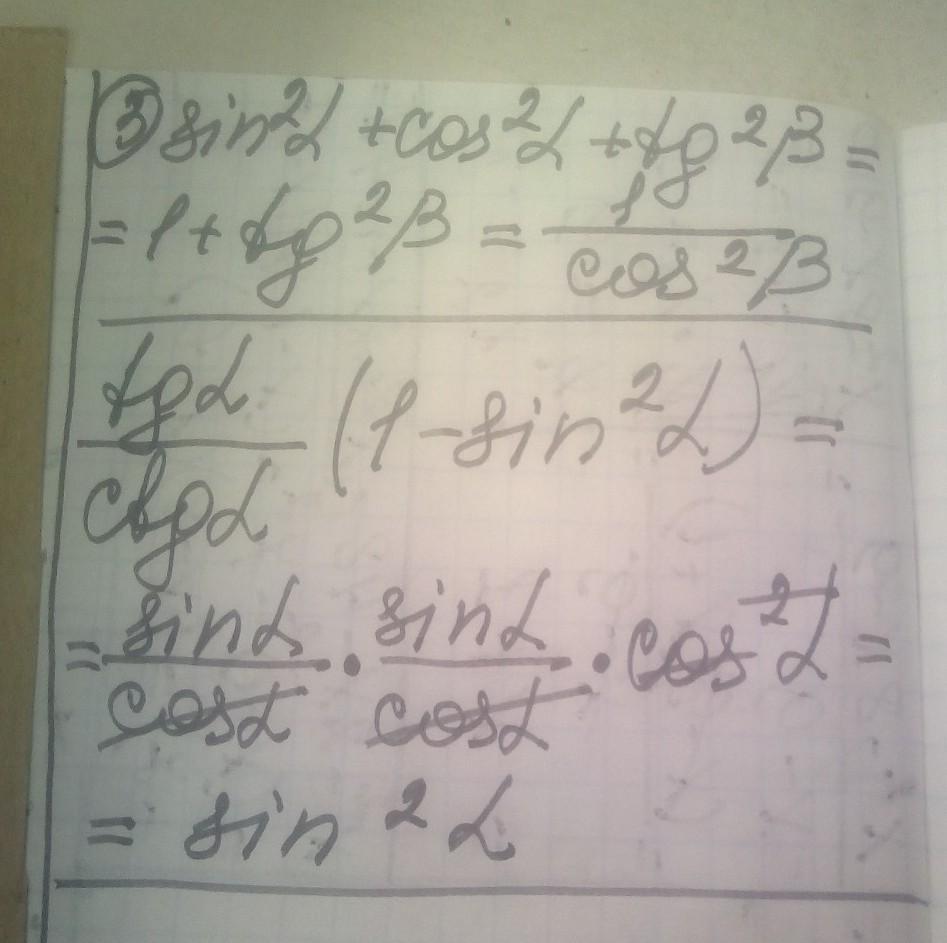 ③ sin²α + cos²α + tg²β =
= 1 + tg²β = 1/cos²β
tgα/ctgα (1 - sin²α) =
= sinα/cosα · sinα/cosα · cos²α =
= sin²α